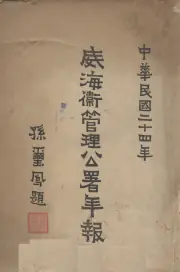 中華民國二十四年
威海衞管理公署年報
孫璽鳳題